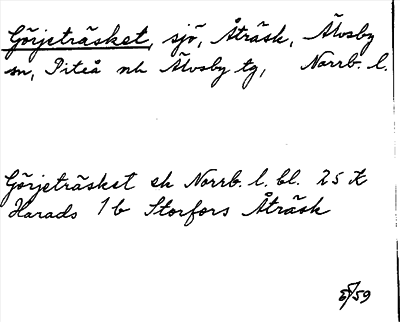 Görjeträsket, sjö, Åträsk, Älvsby
sn, Piteå nh Älvsby tg, Norrb. l.
Görjeträsket ek Norrb. l. bl. 25 K
Harads 1 b Storfors Åträsk
5/59